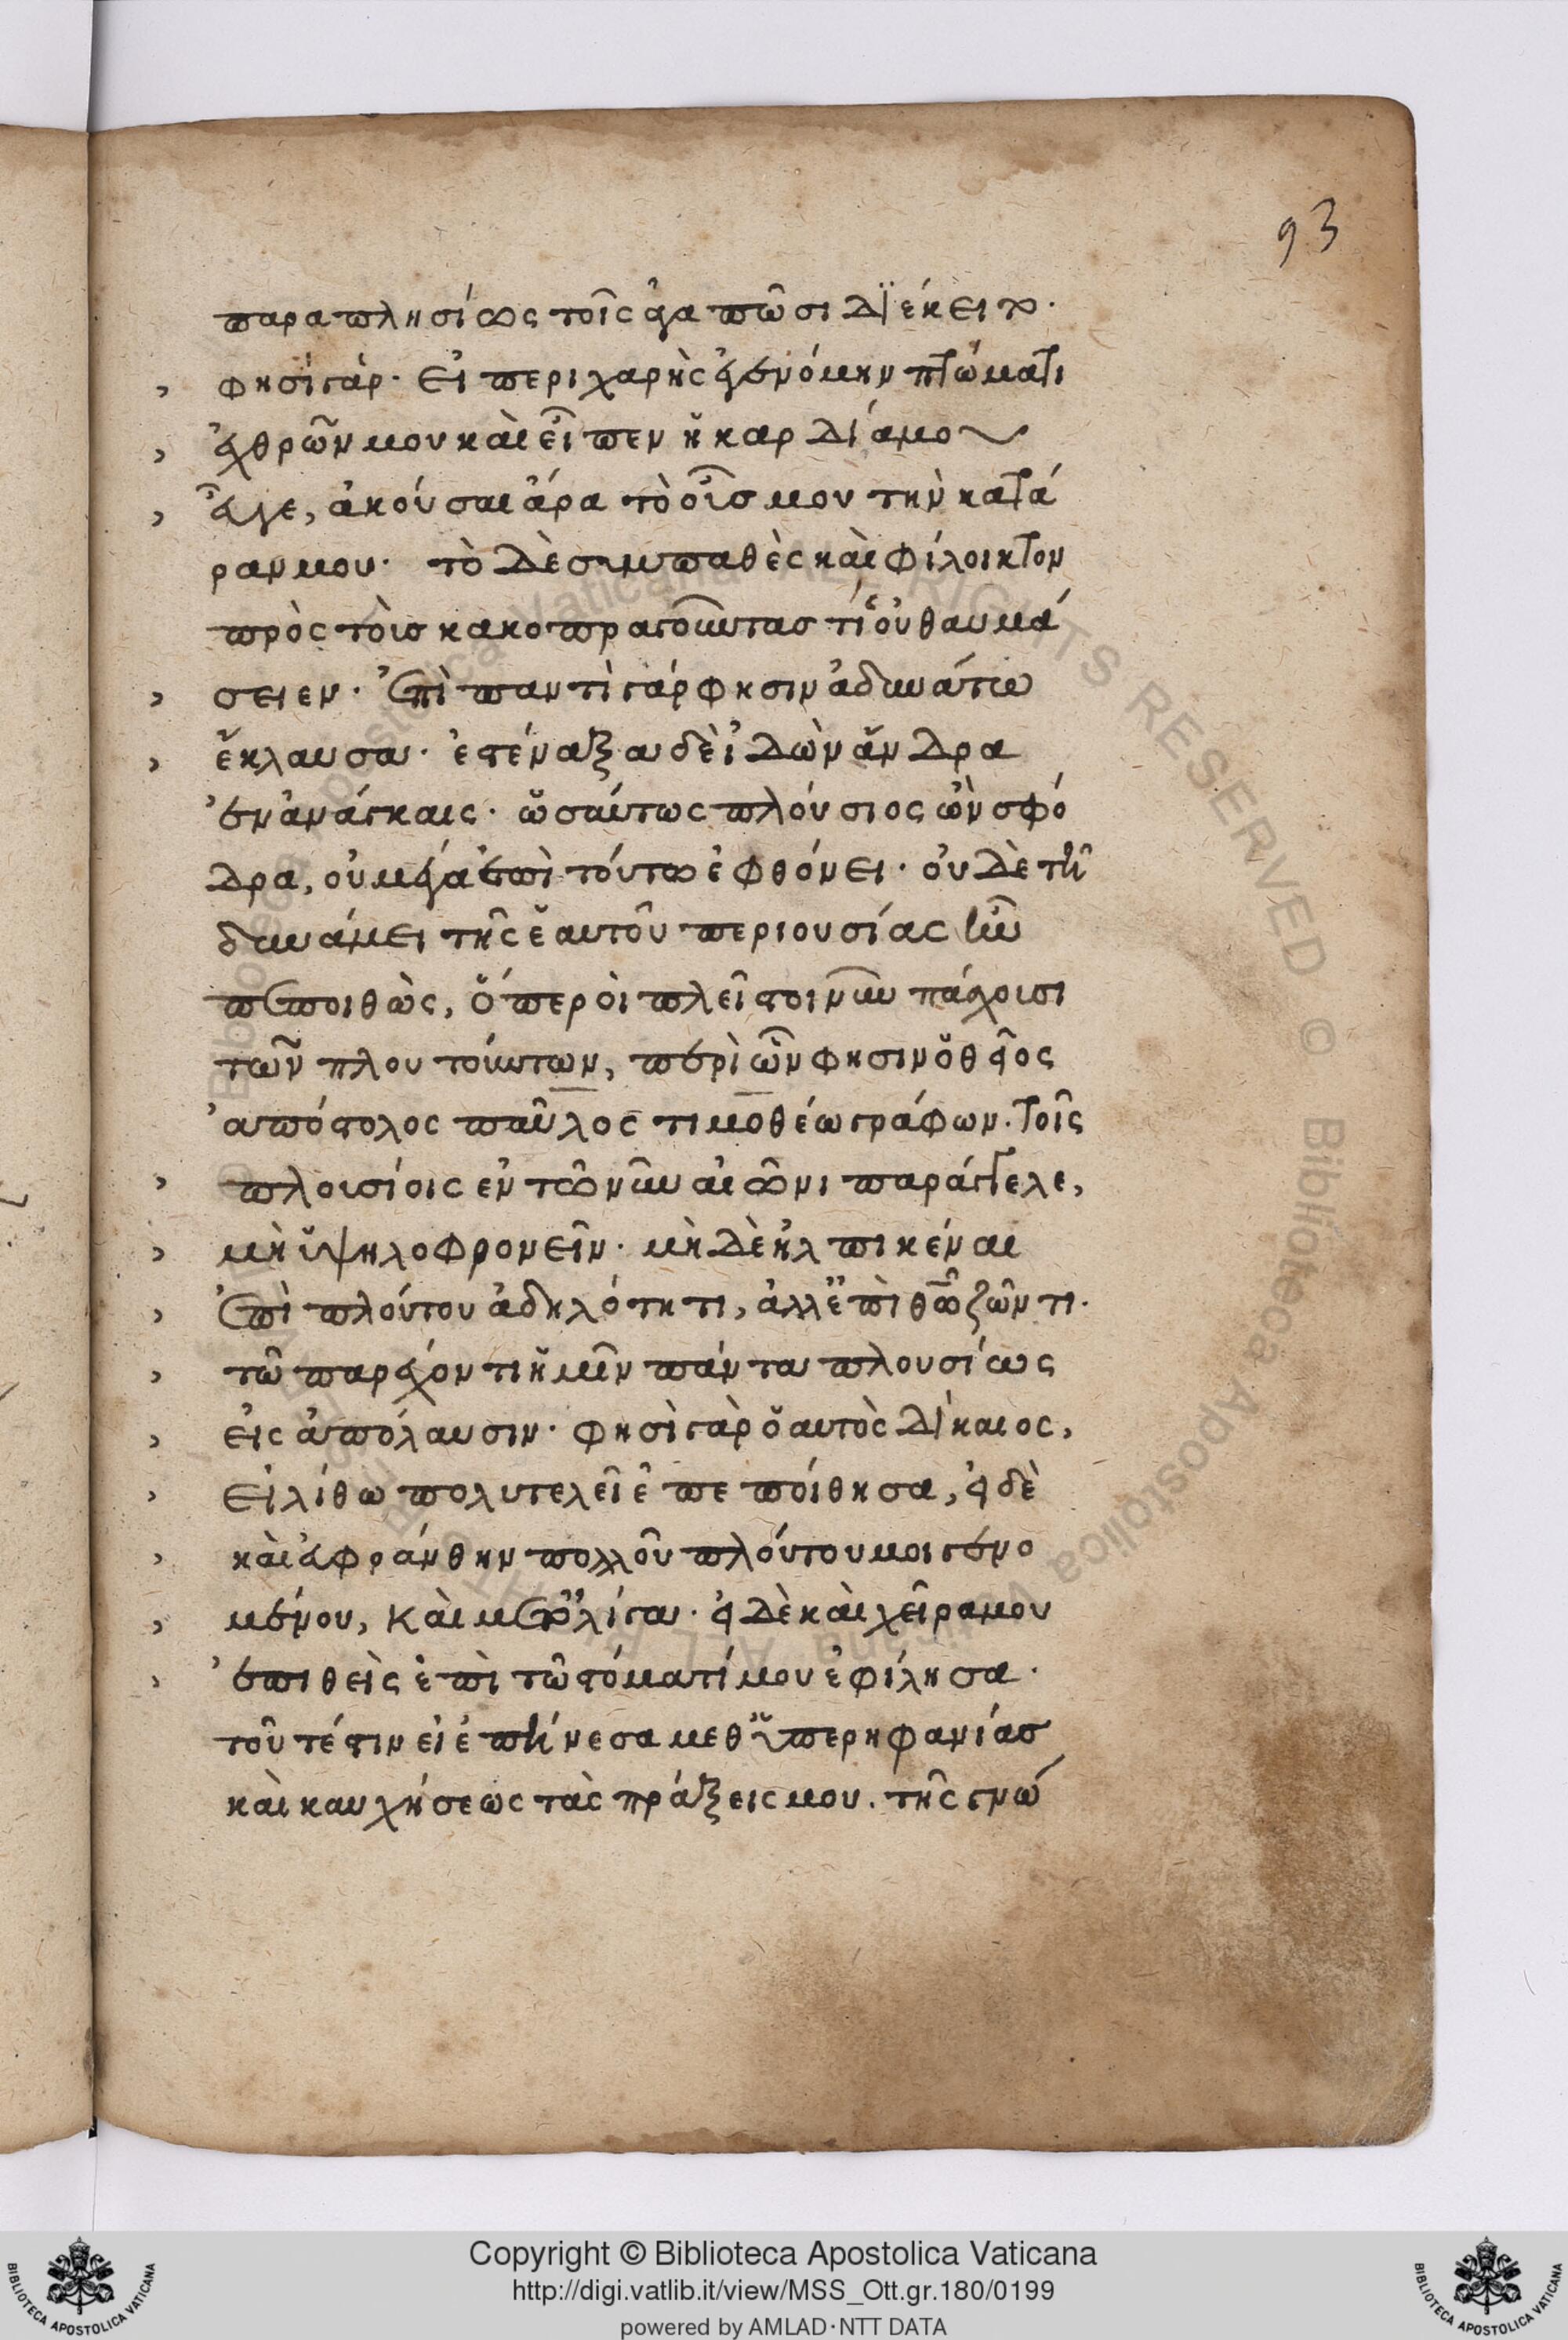 93
παραπλησίως τοῖς ἀγαπῶσι διέκειτο·
φησὶ γάρ· εἰ περιχαρὴς ἐγενόμην πτώματι
ἐχθρῶν μου καὶ εἶπεν ἡ καρδία μου
εὖγε, ἀκούσαι ἄρα τὸ οὖσ μου τὴν κατά
ραν μου· τὸ δὲ συμπαθὲς καὶ φίλοικτον
πρὸς τοὺσ κακοπραγοῦντασ τίς οὐ θαυμά
σειεν· ἐπὶ παντὶ γάρ φησιν ἀδυνάτω
ἔκλαυσα· ἐστέναξα δὲ ἰδὼν ἄνδρα
ἐν ἀνάγκαις· ὡσαύτως πλούσιος ὢν σφό
δρα, οὐ μέγα ἐπὶ τούτω ἐφρόνει· οὐδὲ τῆ
δυνάμει τῆς ἑαυτοῦ περιουσίας ἦν
πεποιθὼς, ὅπερ οἱ πλεῖστοι νῦν πάσχουσι
τῶν πλουτούντων, περὶ ὧν φησιν ὁ θεῖος
ἀπόστολος παῦλος τιμοθέω γράφων. τοῖς
πλουσίοις ἐν τῶ νῦν αἰῶνι παράγγελε,
μὴ ὑψηλοφρονεῖν· μὴ δὲ ἠλπικέναι
ἐπὶ πλούτου ἀδηλότητι, ἀλλ' ἐπὶ θῶ ζῶντι.
τῶ παρέχοντι ἡμῖν πάντα πλουσίως
εἰς ἀπόλαυσιν· φησὶ γὰρ ὁ αὐτὸς δίκαιος,
εἰ λίθω πολυτελεῖ ἐπεποίθησα, εἰ δὲ
καὶ εὐφράνθην πολλοῦ πλούτου μοι γενο
μένου, καὶ μεγάλιστα· εἰ δὲ καὶ χεῖρα μου
ἐπιθεὶς ἐπὶ τῶ στόματί μου ἐφίλησα·
τοῦτέστιν εἰ ἐπήνεσα μεθ' ὑπερηφανίασ
καὶ καυχήσεως τὰς πράξεις μου. τῆς γνώ
Copyright © Biblioteca Apostolica Vaticana
http://digi.vatlib.it/view/MSS_Ott.gr.180/0199
powered by AMLAD·NTT DATA